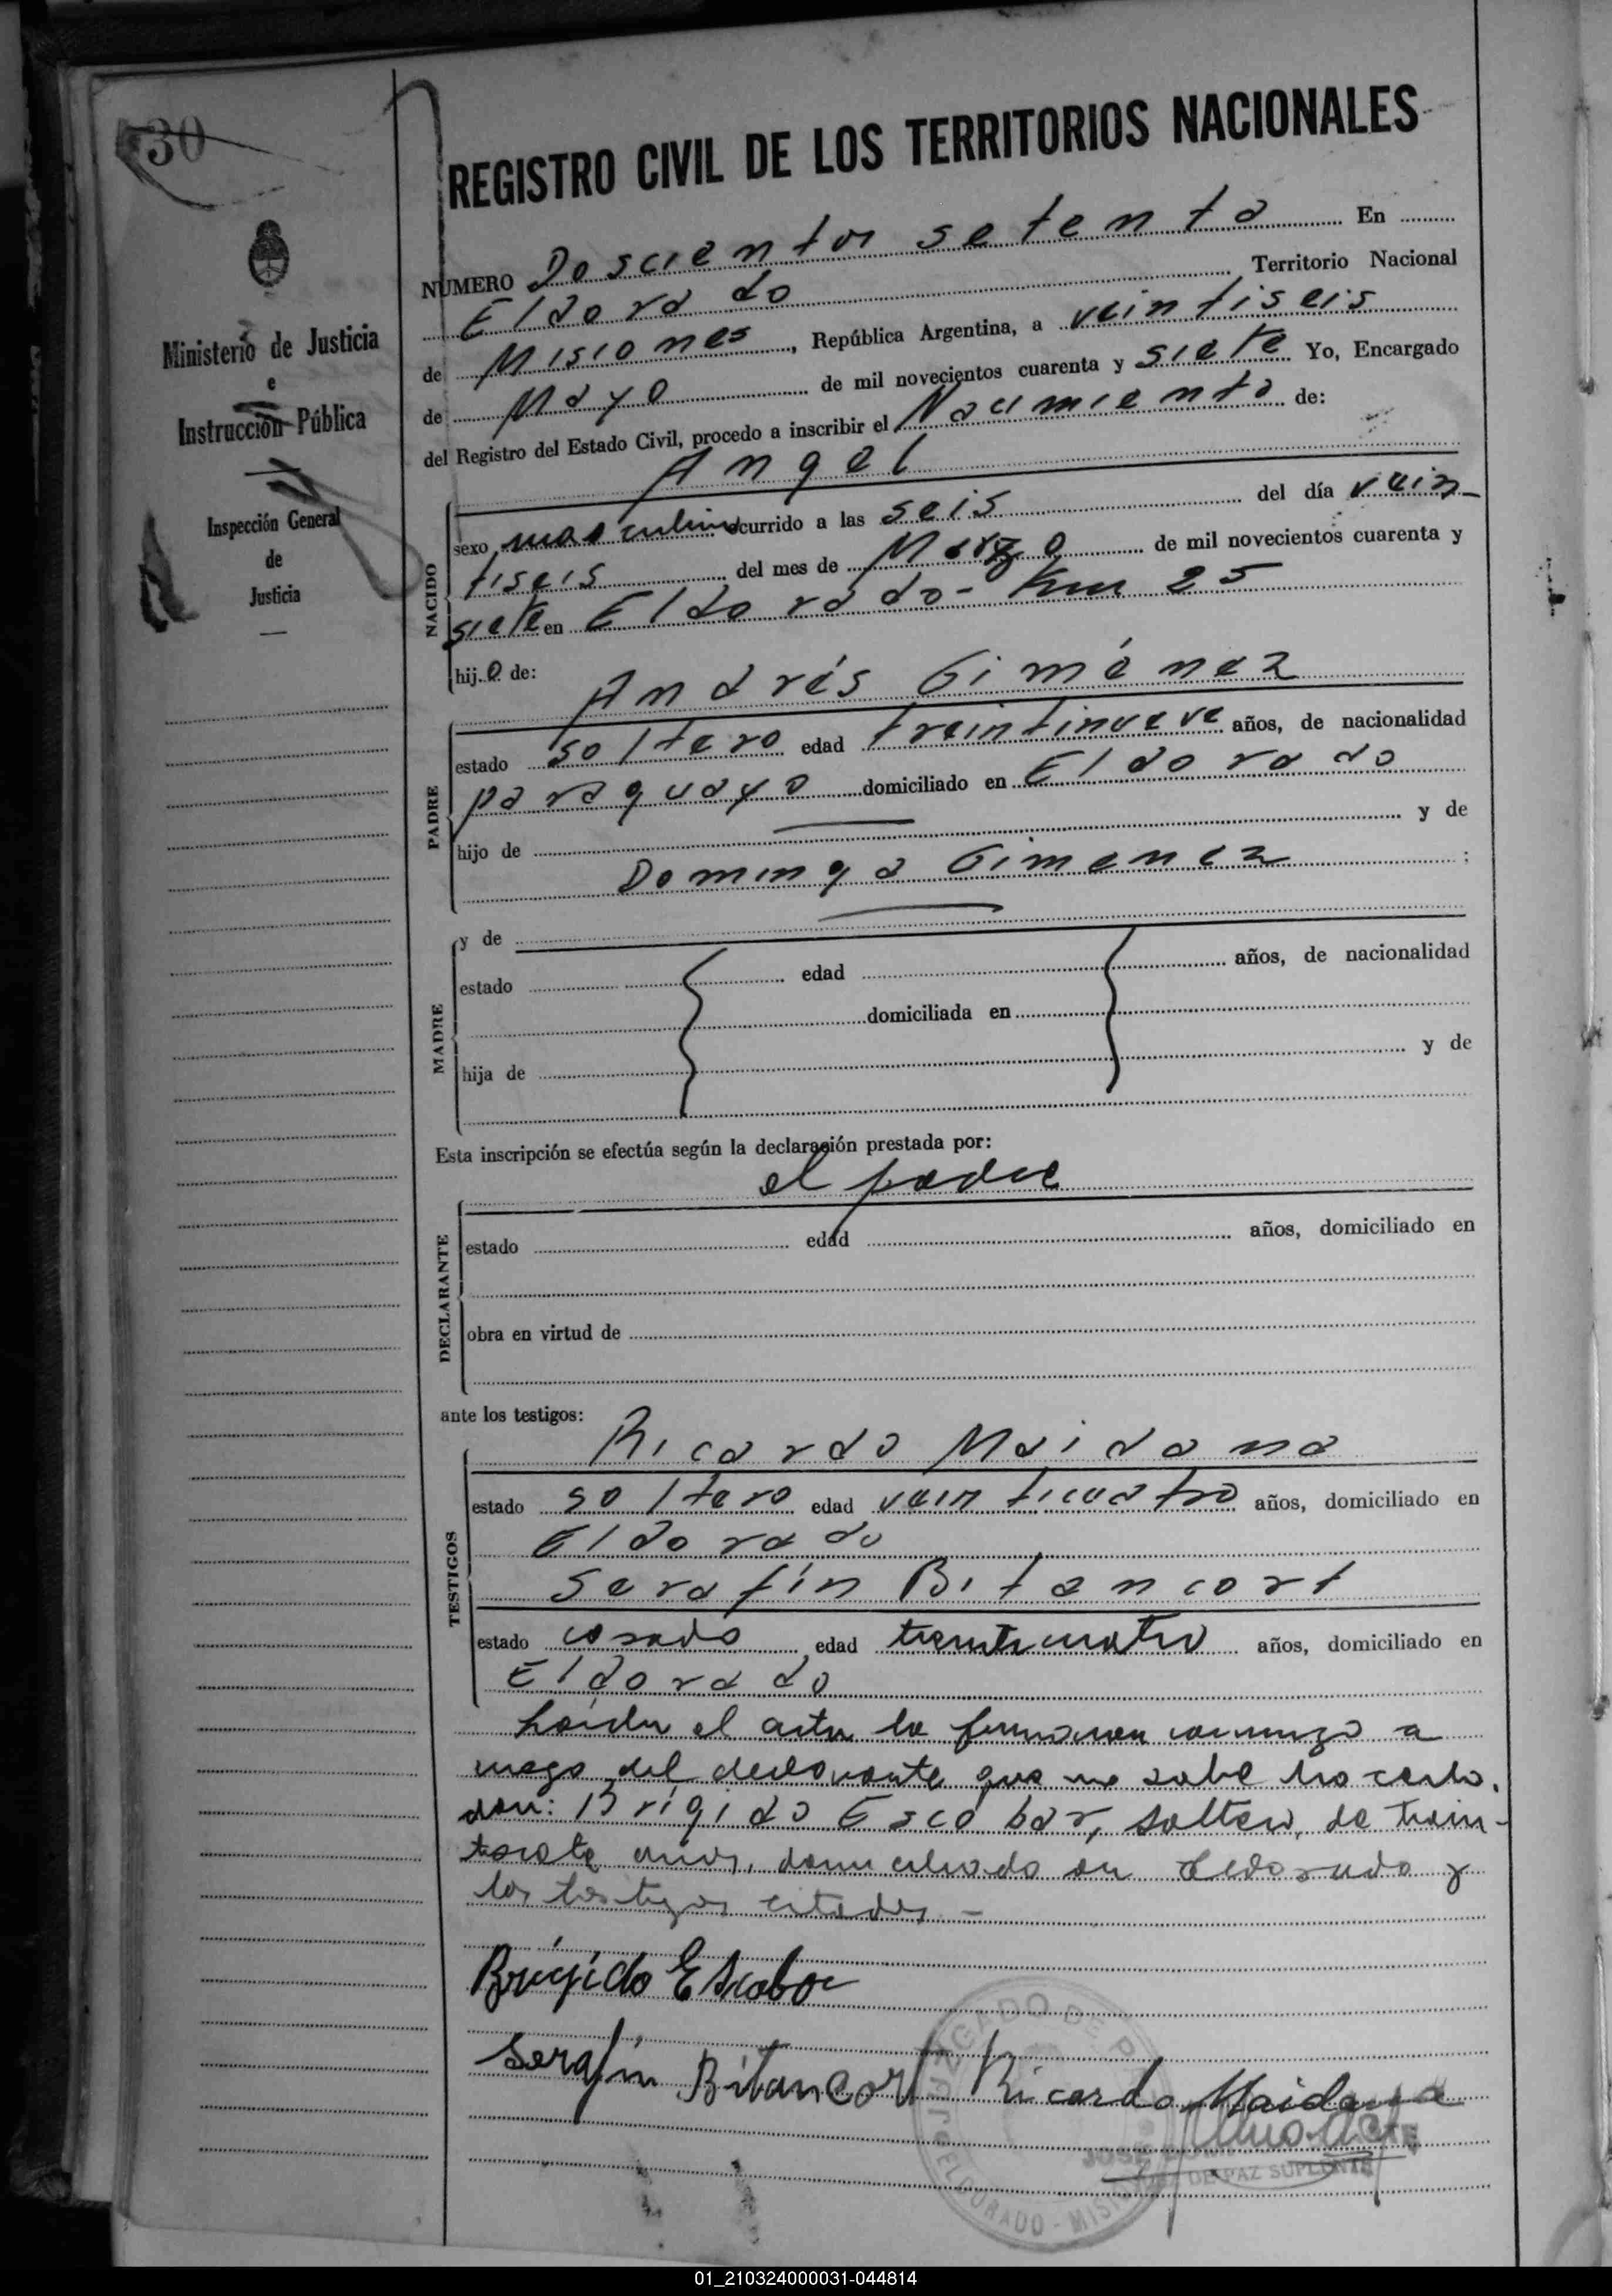 30
REGISTRO CIVIL DE LOS TERRITORIOS NACIONALES
Ministerio de Justicia
e
Instrucción Pública
Inspección General
de
Justicia
NUMERO Doscientos setenta En
Eldorado Territorio Nacional
de Misiones, República Argentina, a veintiseis
de Mayo de mil novecientos cuarenta y siete Yo, Encargado
del Registro del Estado Civil, procedo a inscribir el Nacimiento de:
Angel
NACIDO
sexo masculino ocurrido a las seis del día vein-
tiseis del mes de Marzo de mil novecientos cuarenta y
siete en Eldorado - Km 25
hijo de:
Andrés Giménez
PADRE
estado soltero edad treintinueve años, de nacionalidad
paraguayo domiciliado en Eldorado
hijo de y de
Dominga Gimenez ;
MADRE
y de
estado edad años, de nacionalidad
domiciliada en
hija de y de
Esta inscripción se efectúa según la declaración prestada por:
el padre
DECLARANTE
estado edad años, domiciliado en
obra en virtud de
ante los testigos:
TESTIGOS
Ricardo Maidana
estado soltero edad veinticuatro años, domiciliado en
Eldorado
Serafín Bitancort
estado casado edad treinticuatro años, domiciliado en
Eldorado
Leída el acta la firmaron conmigo a
ruego del declarante que no sabe hacerlo,
don: Brígido Escobar, soltero, de train-
tisiete años, domiciliado en Eldorado y
los testigos citados -
Brígido Escobar
Serafín Bitancort Ricardo Maidana
JUZGADO DE PAZ
ELDORADO - MISIONES
JOSE
DE PAZ SUPLENTE
01_210324000031-044814